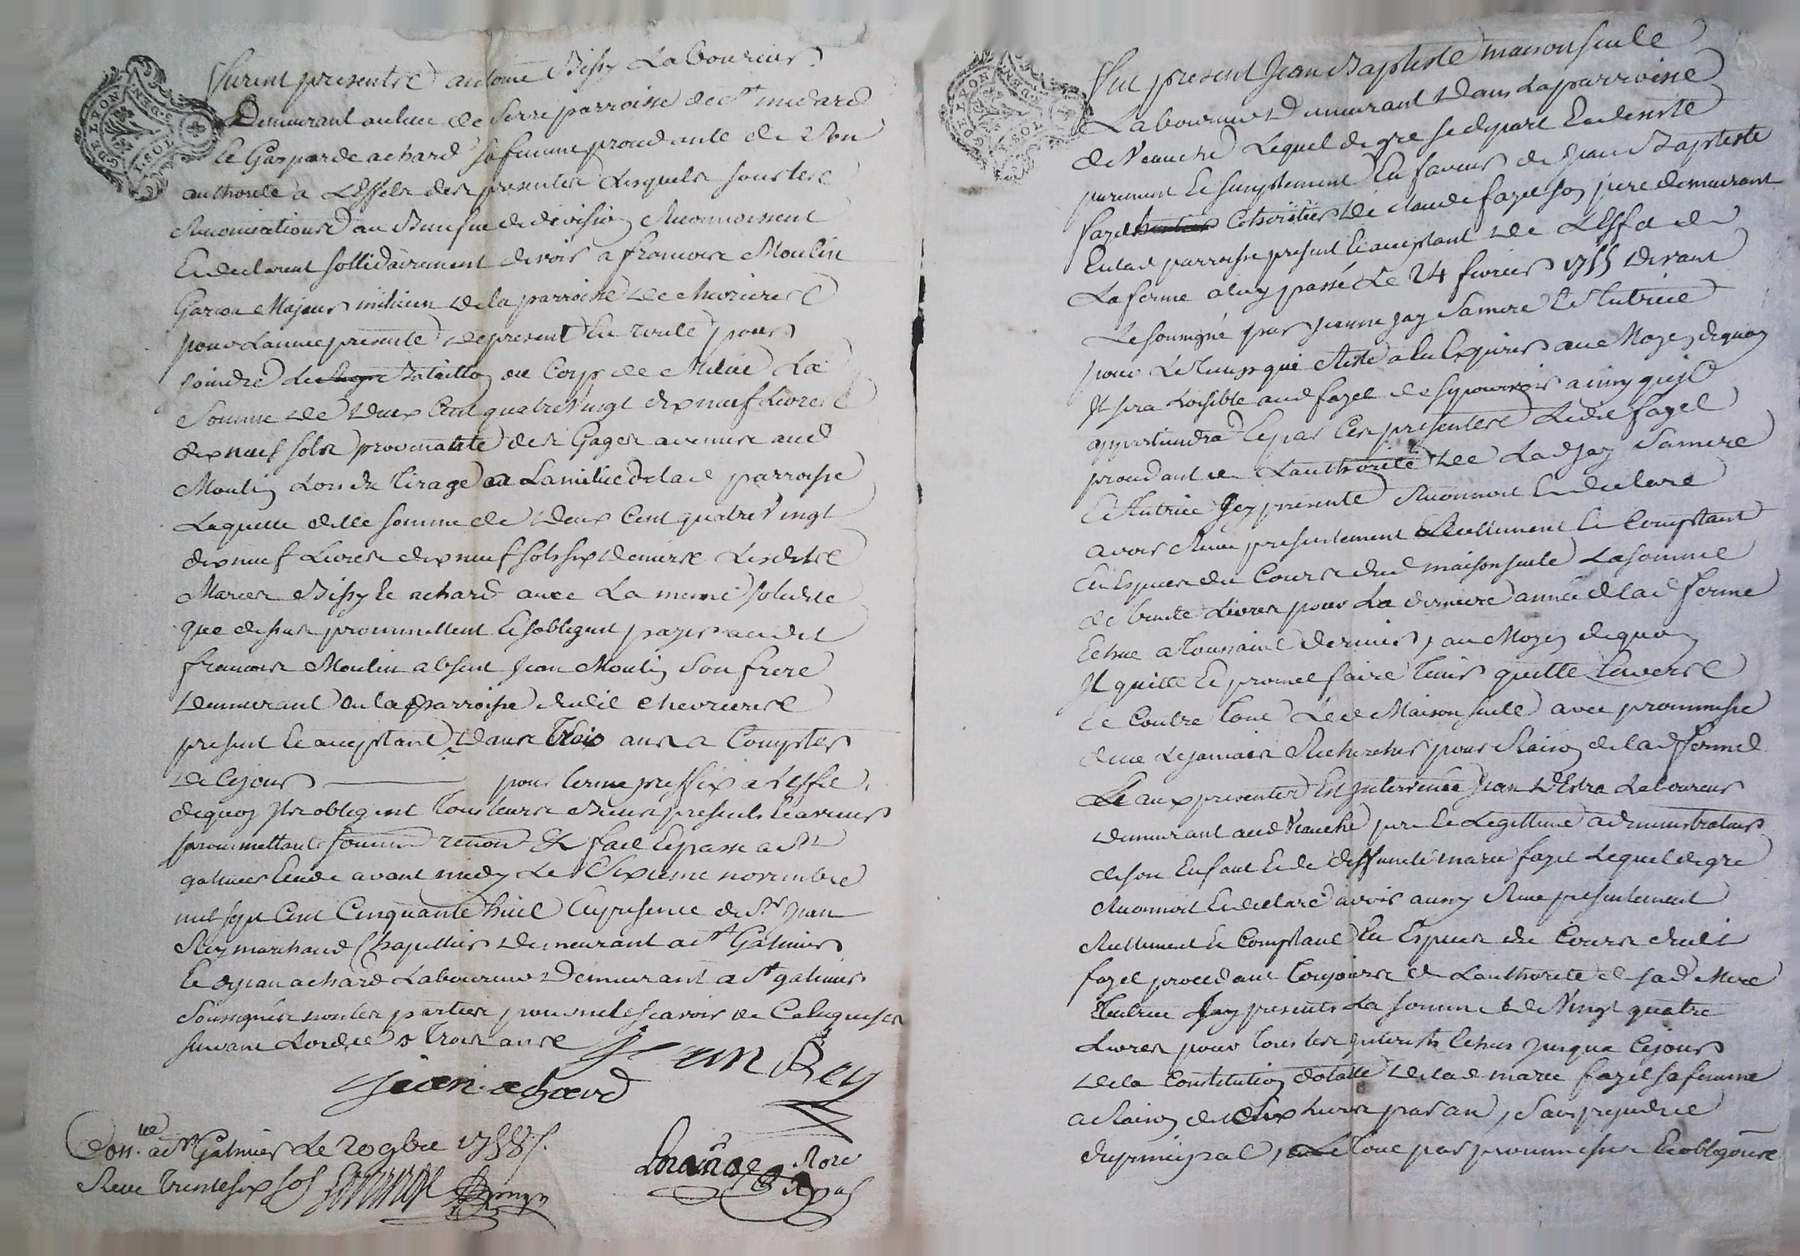 GE LYON
DEN
1 SOL
furent presentes antoine Bissy Laboureur
Demeurant au lieu de Serre parroisse de st medard
Et Gasparde achard sa femme procedante de Son
authorité a Leffet des presentes Lesquels sous les
Renonciations au Benefice de division Reconnoissent
Et declarent sollidairement devoir a francois Moulin
Garcon Majeur milicien de la parroisse de chevrieres
pour Lannee presente de present En route pour
joindre le Bataillon ou Corps de Milice La
Somme de deux Cent quatre vingt dix neuf Livres
dix neuf sols provenante des Gages avenus aud
Moulin Lors du tirage a La milice de lad parroisse
Laquelle ditte somme de deux Cent quatre vingt
dix neuf Livres dix neuf sols six deniers Lesdits
Maries Bissy Et achard avec La meme solidite
que dessus promettent Et sobligent payer audit
francois Moulin absent Jean Moulin Son frere
demeurant En la parroisse dudit chevrieres
present Et acceptant dans trois ans a Compter
de Cejour pour terme preffix a Leffet
dequoy Ils obligent tous leurs Biens presents Et avenir
promettants soumis renon &c fait Et passe a St
galmier Etude avant midy Le Sixieme novembre
mil sept Cent Cinquante huit En presence de Sr Jean
Rey marchand Chapellier demeurant a st Galmier
Et de jean achard Laboureur Demeurant a st galmier
Soussignés non les parties pour ne scavoir de Ce Enquises
suivant Lordre trois ans
Jean Rey
jean achard
Con.lée a St Galmier Le 20 9bre 1758
Receu trente six sols
Note
fut present Jean Baptiste maisonseule
Laboureur Demeurant dans La parroisse
de Veauche Lequel de gre se depart Et desiste
purement Et simplement En faveur de Jean Baptiste
fazel Coheritier de claude fazel son pere demeurant
En lad parroisse present Et acceptant de Leffet de
La ferme a luy passé Le 24 fevrier 1755 devant
Le soussigné par jeanne jay Sa mere Et tutrice
pour Le temps qui Reste a En Expirer au Moyen dequoy
Il sera Loisible aud fazel de se pourvoir ainsy quil
appartiendra Et par Ces presentes Ledit fazel
procedant de Lauthorité de Lad jay Sa mere
Et tutrice Icy presente Reconnoit Et declare
avoir Receu presentement Reellement Et Comptant
En Especes du Cours dud maisonseule La somme
de trente Livres pour La derniere année de lad ferme
Echue a toussaint dernier, au Moyen dequoy
Il quitte Et promet faire tenir quitte Envers
Et Contre tous Led Maisonseule avec promesse
de ne Lejamais Rechercher pour Raison de lad ferme
Et aux presentes Est Intervenu Jean Laboureur
demeurant aud Veauche pere Et Legittime administrateur
de son Enfant Et de deffunte marie fazel Lequel de gre
Reconnoit Et declare avoir aussy Receu presentement
Reellement Et Comptant En Especes du Cours dudit
fazel procedant toujours de Lauthorité de sad Mere
tutrice Icy presente La somme de Vingt quatre
Livres pour tous les Interests Echus jusqua Cejour
de la Constitution dotalle de lad marie fazel sa femme
a Raison de dix Livres par an, Sans prejudice
du principal, Le tout par promesses Et obligations